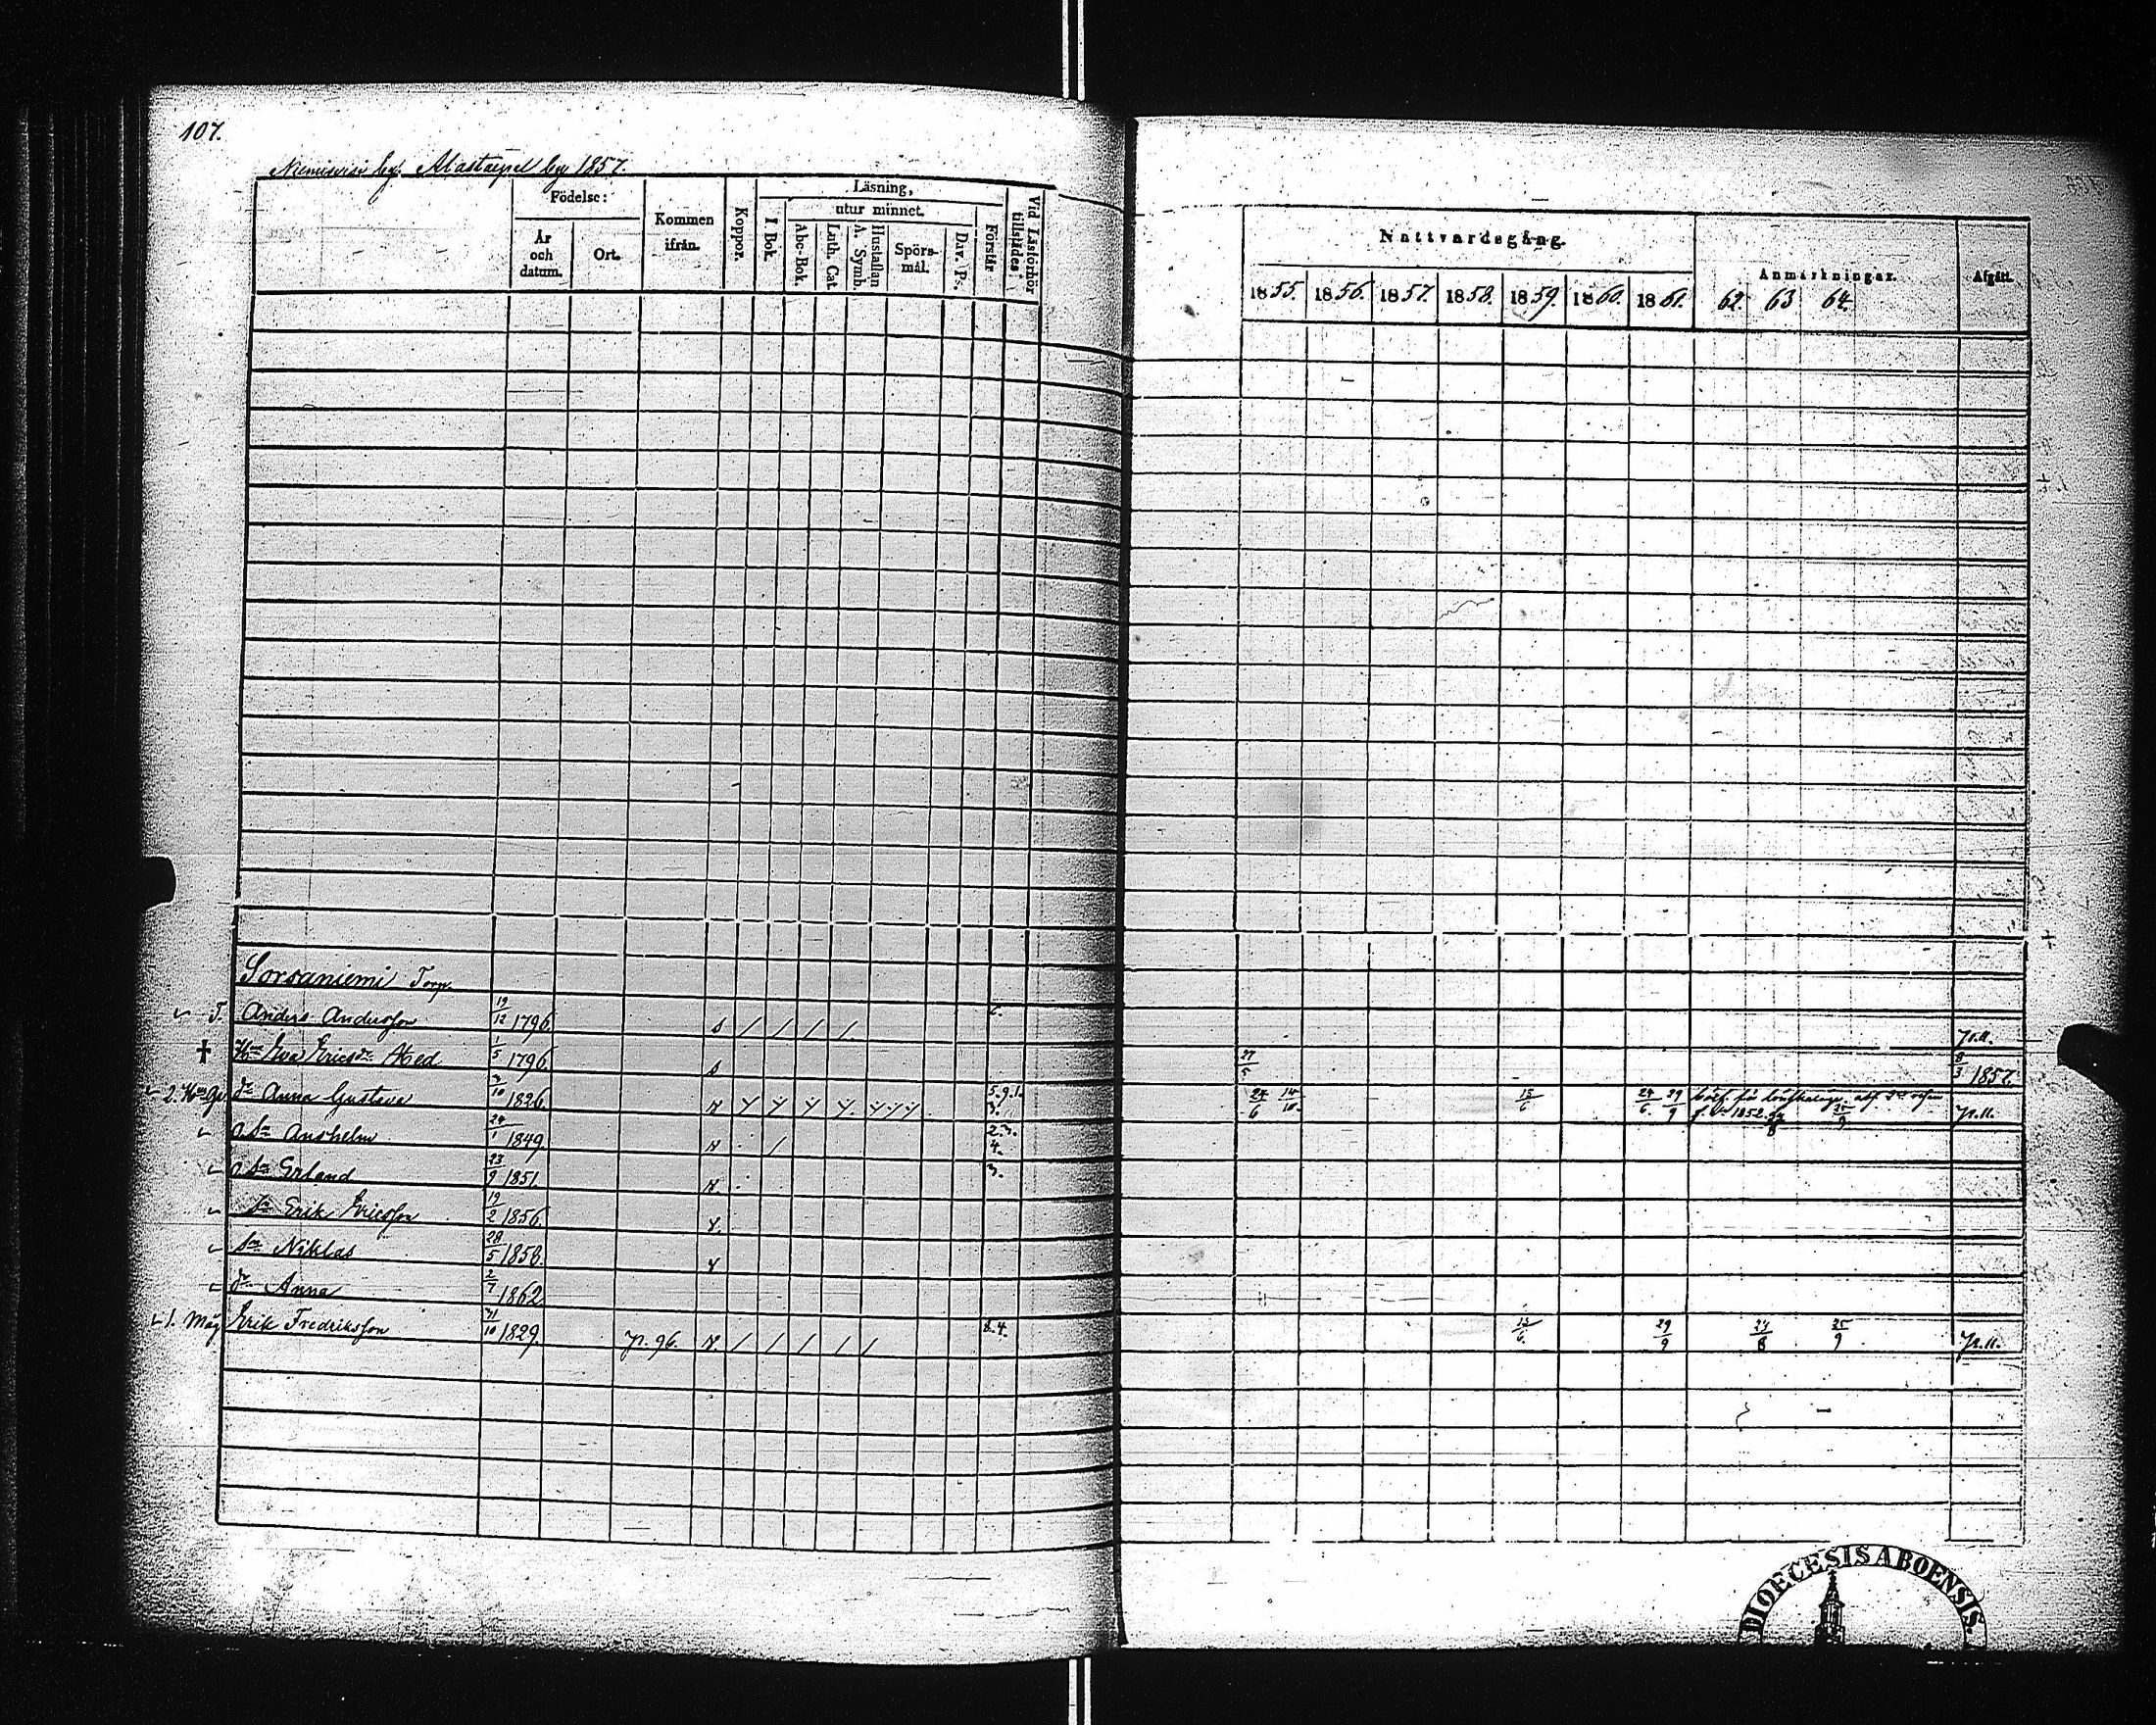 107.
by. Alastaipal by 1857.
Födelse:
År och datum.
Ort.
Kommen ifrån.
Koppor.
Läsning,
I Bok.
utur minnet.
Abc-Bok.
Luth. Cat
Hustaflan A. Symb.
Spörsmål.
Dav. Ps.
Förstår
Vid Läsförhör tillstädes:
Nattvardsgång.
1855. 1856. 1857. 1858. 1859. 1860. 1861.
Anmärkningar.
62. 63 64.
Afgått.
Sorsaniemi Torp.
T. Anders Andersson 19/12 1796. s / / / / p.11.
† Hu Eva Ericsdr 1/5 1796. s 27/5 8/3 1857.
2. dr Anna Gustava 3/10 1826. 5.9.1. 3. 24/6 14/10 13/6 24/6 29/9 1852 p.11.
o. Sn Anshelm 24/1 1849. 2.3. 4.
o Sn Erland 23/9 1851. 3.
Sn Erik Ericsson 19/2 1856.
Sn Niklas 28/5 1858.
dr Anna 2/7 1862
1. Måg Erik Fredriksson 31/10 1829. p. 96. / / / / / 13/6 29/9 24/8 25/9 p.11.
DIOECESIS ABOENSIS.